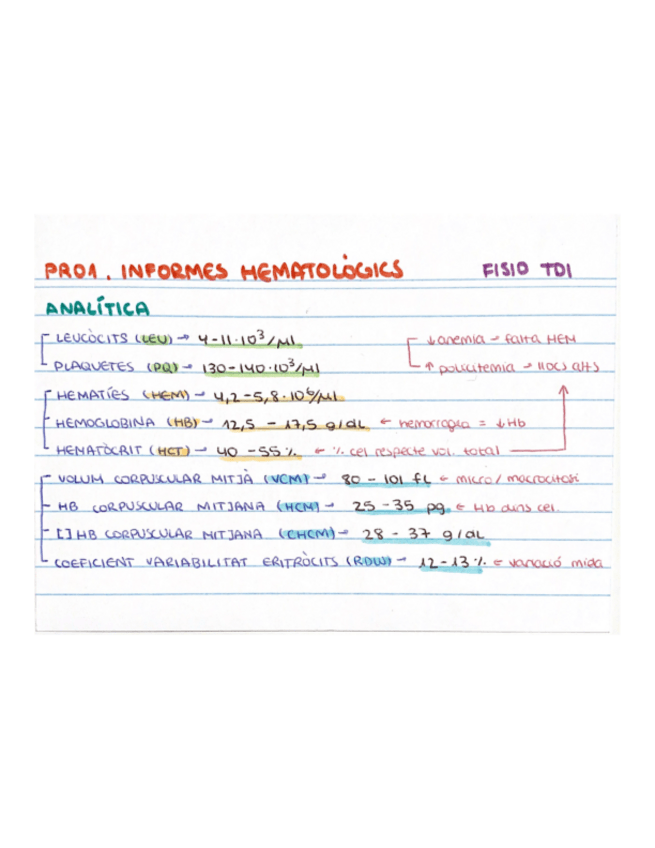 PRO1. INFORMES HEMATOLÒGICS FISIO TDI
ANALÍTICA
LEUCÒCITS (LEU) → 4-11·10³/µl ↓anemia → falta HEM
PLAQUETES (PQ) → 130-140·10³/µl ↑ policitemia → llocs alts
HEMATÍES (HEM) → 4,2-5,8·10⁶/µl
HEMOGLOBINA (HB) → 12,5 - 17,5 g/dL ← hemorragia = ↓Hb
HEMATÒCRIT (HCT) → 40 -55% ← % cel respecte vol. total
VOLUM CORPUSCULAR MITJÀ (VCM) → 80 - 101 fL ← micro/macrocitosi
HB CORPUSCULAR MITJANA (HCM) → 25-35 pg ← Hb dins cel.
[] HB CORPUSCULAR MITJANA (CHCM) → 28 - 37 g/dL
COEFICIENT VARIABILITAT ERITRÒCITS (RDW) → 12-13% ← variació mida